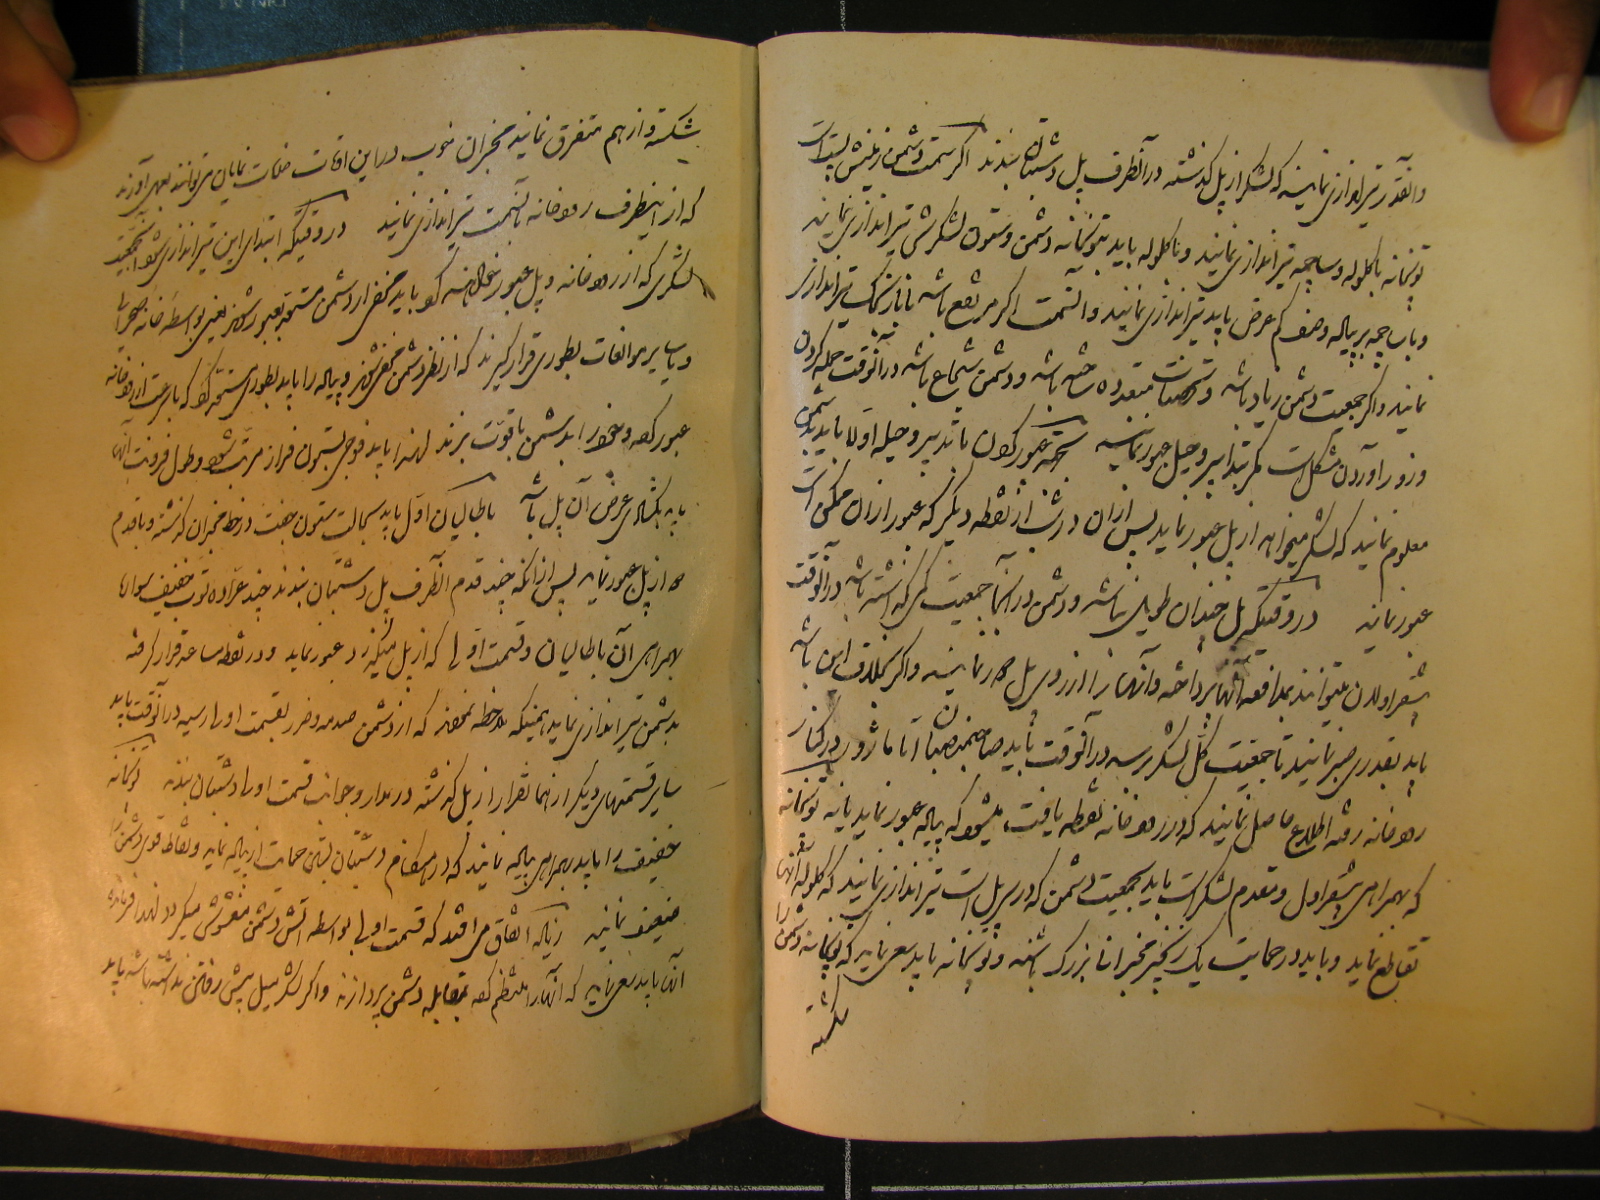 و آنقدر تیراندازی نمایند که لشکر از پل گذشته در آنطرف پل دشتبان بندند اگر سمت دشمن زمینش پست است
توپخانه با گلوله و ساچمه تیراندازی نمایند و با گلوله باید بتوپخانه دشمن و ستون لشکرش تیراندازی نمایند
و با ساچمه بر پیاده و صف کم عرض باید تیراندازی نمایند و آنسمت اگر مرتفع باشد با نارنجک تیراندازی
نمایند و اگر جمعیت دشمن زیاد باشد و متعدده ساخته باشد و دشمن شجاع باشد در آنوقت حمله کردن
و زور آوردن مشکل است مگر بتدابیر و حیل عبور نمایند عبور کردن با تدبیر و حیله اولا باید بدشمن
معلوم نمایند که لشکر میخواهد از پل عبور نماید پس از آن در شب از نقطه دیگر که عبور از آن ممکن است
عبور نمایند در وقتیکه پل چندان طویل نباشد و دشمن در آنجا جمعیت کمی گذاشته باشد در آنوقت
پیشقراولان میتوانند بمدافعه آنها پرداخته و آنها را از روی پل دور نمایند و اگر بخلاف این باشد
باید بقدری صبر نمایند تا جمعیت کل لشکر برسد در آنوقت باید صاحبمنصبان اتاماژور در کنار
رودخانه رفته اطلاع حاصل نمایند که در رودخانه نقطه یافت میشود که پیاده عبور نماید یا نه توپخانه
که بهمراهی پیشقراول و مقدم لشکر است باید بجمعیت دشمن که در سر پل است تیراندازی نمایند که گلوله آنها
تقاطع نماید و باید در حمایت یک زنجیر مخبران بزرگ باشند و توپخانه باید سعی نماید که توپخانه دشمن را
شکسته
شکسته و از هم متفرق نمایند مخبران خوب در این اوقات خدمات نمایان میتوانند بعمل آورند
که از اینطرف رودخانه بآنسمت تیراندازی نمایند در وقتیکه ابتدای این تیراندازی شود آنجمعیت
لشکری که از رودخانه و پل عبور خواهند کرد باید مخفی از دشمن مستعد عبور شوند یعنی بواسطه خانه صحرائی
و یا سایر موانعات بطوری قرار گیرند که از نظر دشمن مخفی شوند و پیاده را باید بطوری مستعد کرد که بسرعت از رودخانه
عبور کرده و خود را بدشمن با قوت بزند لهذا باید فوجی بستون فراز مرتب شود و طول فرونت آنها
باید بگشادی عرض آن پل باشد باطالیان اول باید بحالت ستون جفت در خط مخبران گذشته و با قدم
دو از پل عبور نماید پس از آنکه چند قدم آنطرف پل دشتبان بندند چند عراده توپ خفیف سواره
بهمراهی آن باطالیان و قسمت اولی که از پل میگذرد عبور نماید و در نقطه مساعد قرار گرفته
بدشمن تیراندازی نماید همینکه ملاحظه نمودند که از دشمن صدمه و ضرر بقسمت اولی رسید در آنوقت باید
سایر قسمتهای دیگر از همانقرار از پل گذشته در مدار و جوانب قسمت اولی دشتبان بندند توپخانه
خفیف را باید بهمراهی پیاده نمایند که در هنگام دشتبان بستن حمایت از پیاده نماید و نقاط قوی دشمن را
ضعیف نمایند زیرا که اتفاق می افتد که قسمت اولی بواسطه آتش دشمن مغشوش میگردد لهذا فرمانده
آنها باید سعی نماید که آنها را منظم کرده بمقابله دشمن پردازند و اگر لشکر میل پیش رفتن نداشته باشد باید